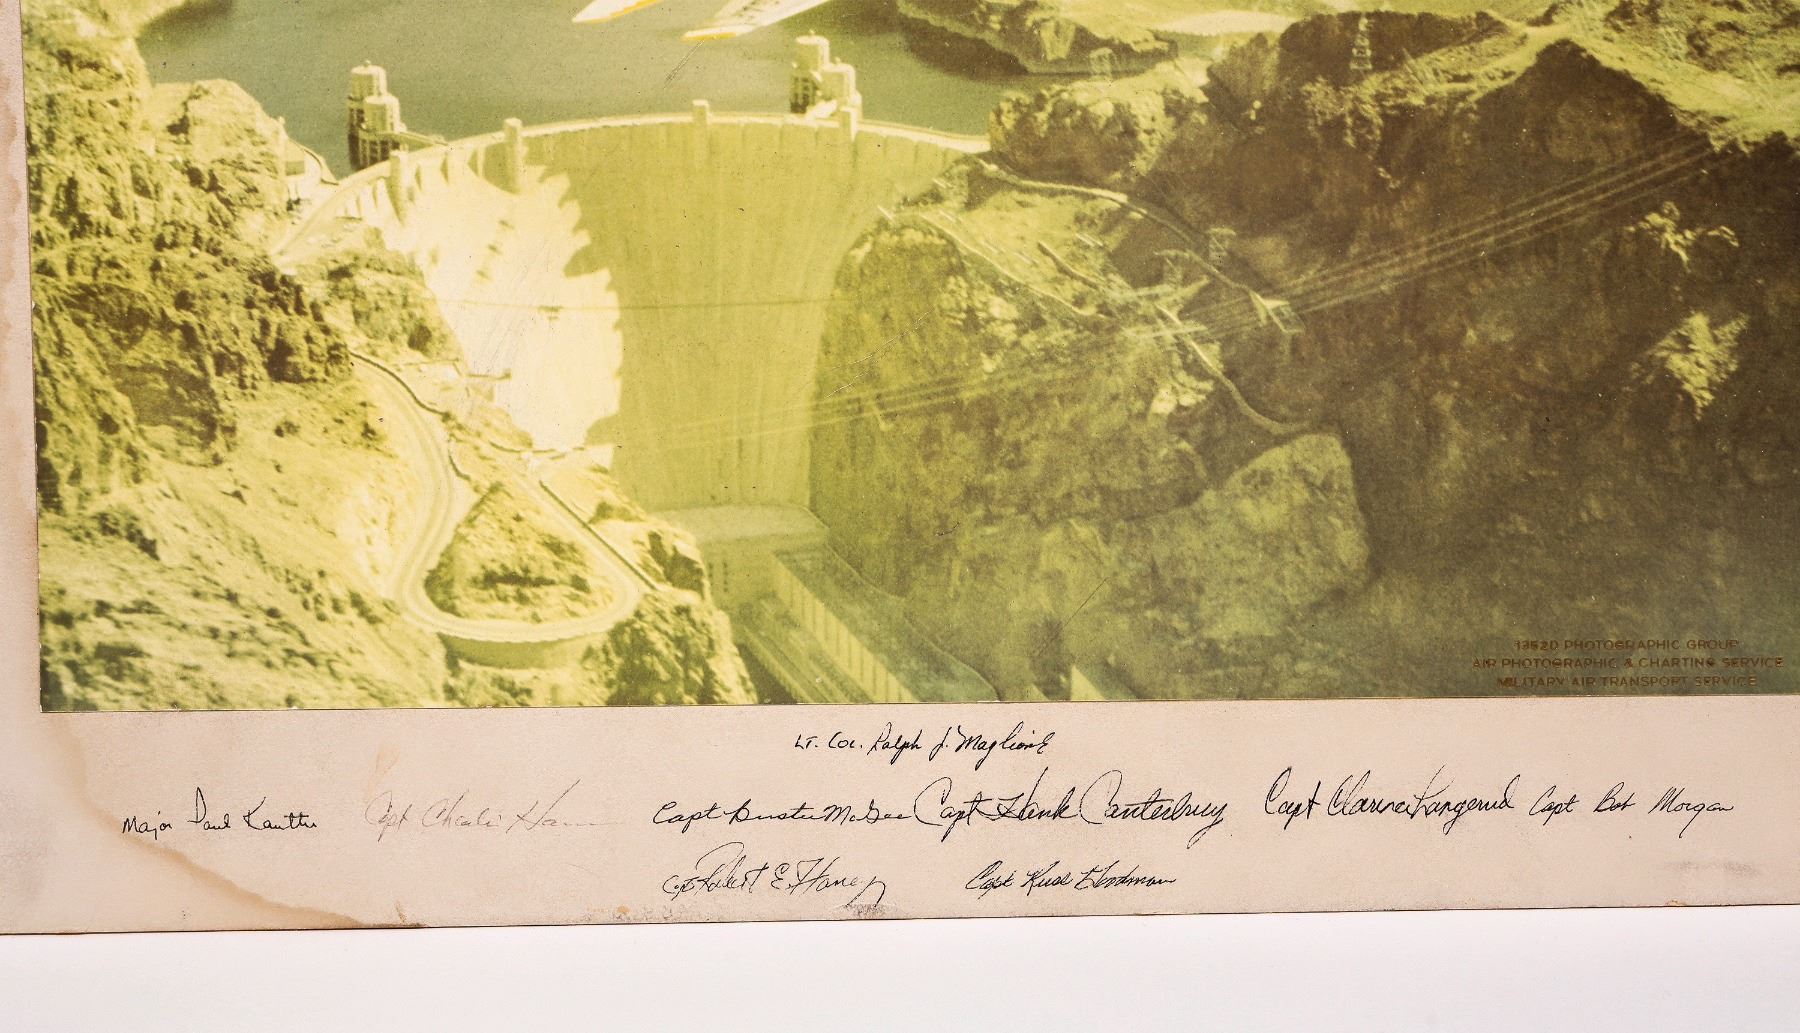 1352D PHOTOGRAPHIC GROUP
AIR PHOTOGRAPHIC & CHARTING SERVICE
MILITARY AIR TRANSPORT SERVICE
Lt. Col. Ralph J. Maglione
Major Paul Kauttu Capt Capt Buster McGee Capt Hank Canterbury Capt Clarence Langerud Capt Bob Morgan
Capt Robert E. Haney Capt Russ Goodman